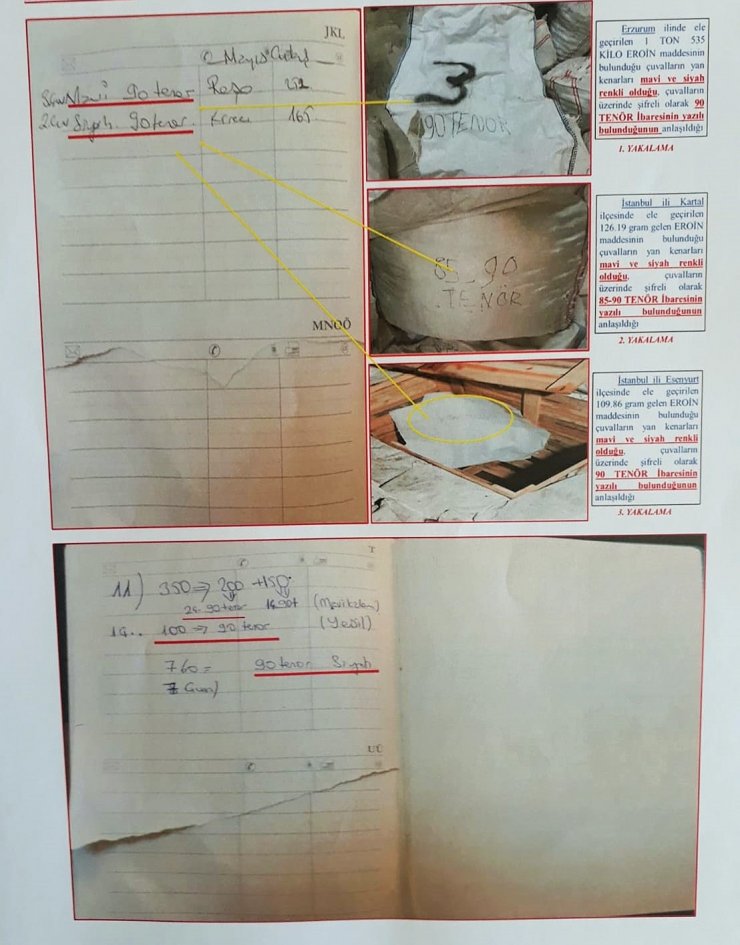 JKL
Mayıs
90 tenor
Siyah 90 tenor 165
MNOÖ
3
90 TENÖR
85_90
TENÖR
Erzurum ilinde ele
geçirilen 1 TON 535
KİLO EROİN maddesinin
bulunduğu çuvalların yan
kenarları mavi ve siyah
renkli olduğu, çuvalların
üzerinde şifreli olarak 90
TENÖR İbaresinin yazılı
bulunduğunun anlaşıldığı
1. YAKALAMA
İstanbul ili Kartal
ilçesinde ele geçirilen
126.19 gram gelen EROİN
maddesinin bulunduğu
çuvalların yan kenarları
mavi ve siyah renkli
olduğu, çuvalların
üzerinde şifreli olarak
85-90 TENÖR İbaresinin
yazılı bulunduğunun
anlaşıldığı
2. YAKALAMA
İstanbul ili Esenyurt
ilçesinde ele geçirilen
109.86 gram gelen EROİN
maddesinin bulunduğu
çuvalların yan kenarları
mavi ve siyah renkli
olduğu, çuvalların
üzerinde şifreli olarak
90 TENÖR İbaresinin
yazılı bulunduğunun
anlaşıldığı
3. YAKALAMA
T
11) 350 ⇒ 200 +150
90 tenor
14.. 100 ⇒ 90 tenor (Yeşil)
760 = 90 tenor Siyah
UÜ